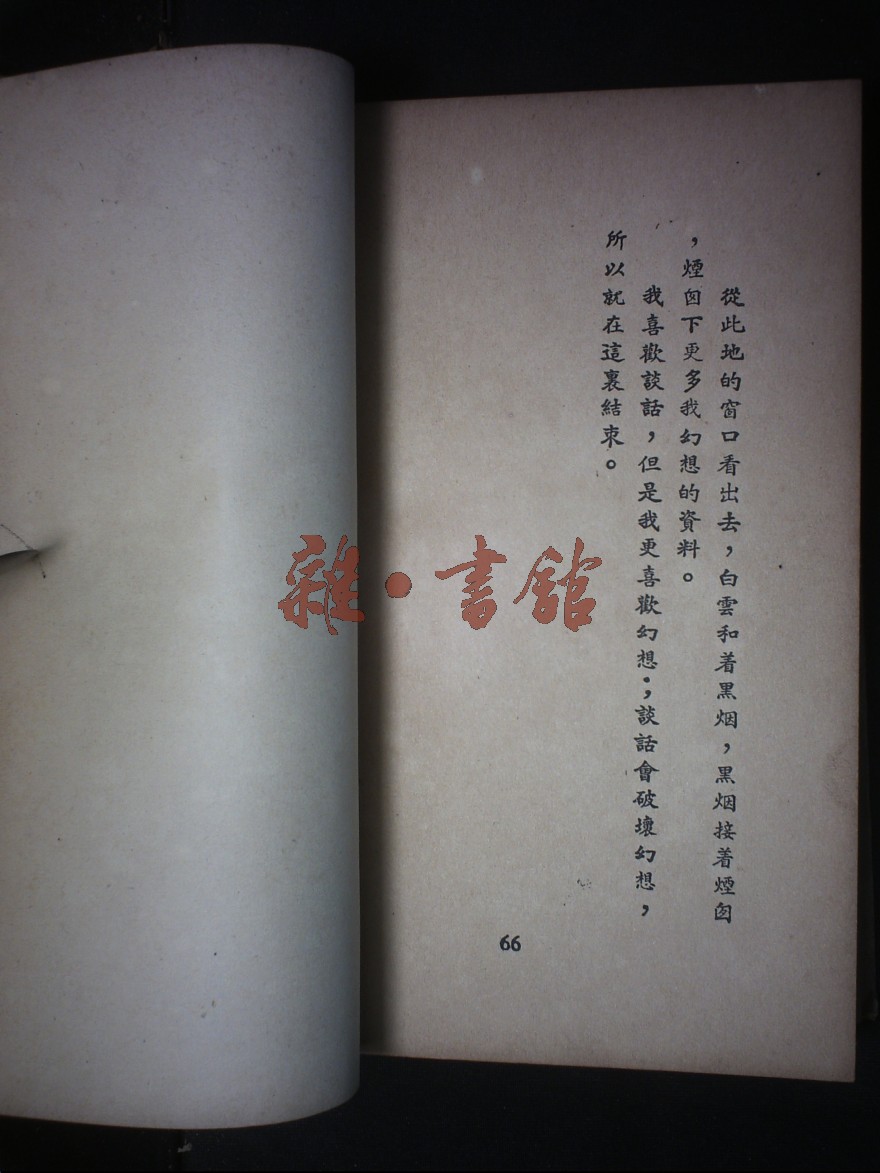 從此地的窗口看出去，白雲和着黑烟，黑烟接着煙囱
，煙囱下更多我幻想的資料。
我喜歡談話，但是我更喜歡幻想；談話會破壞幻想，
所以就在這裏結束。
66
雜·書館